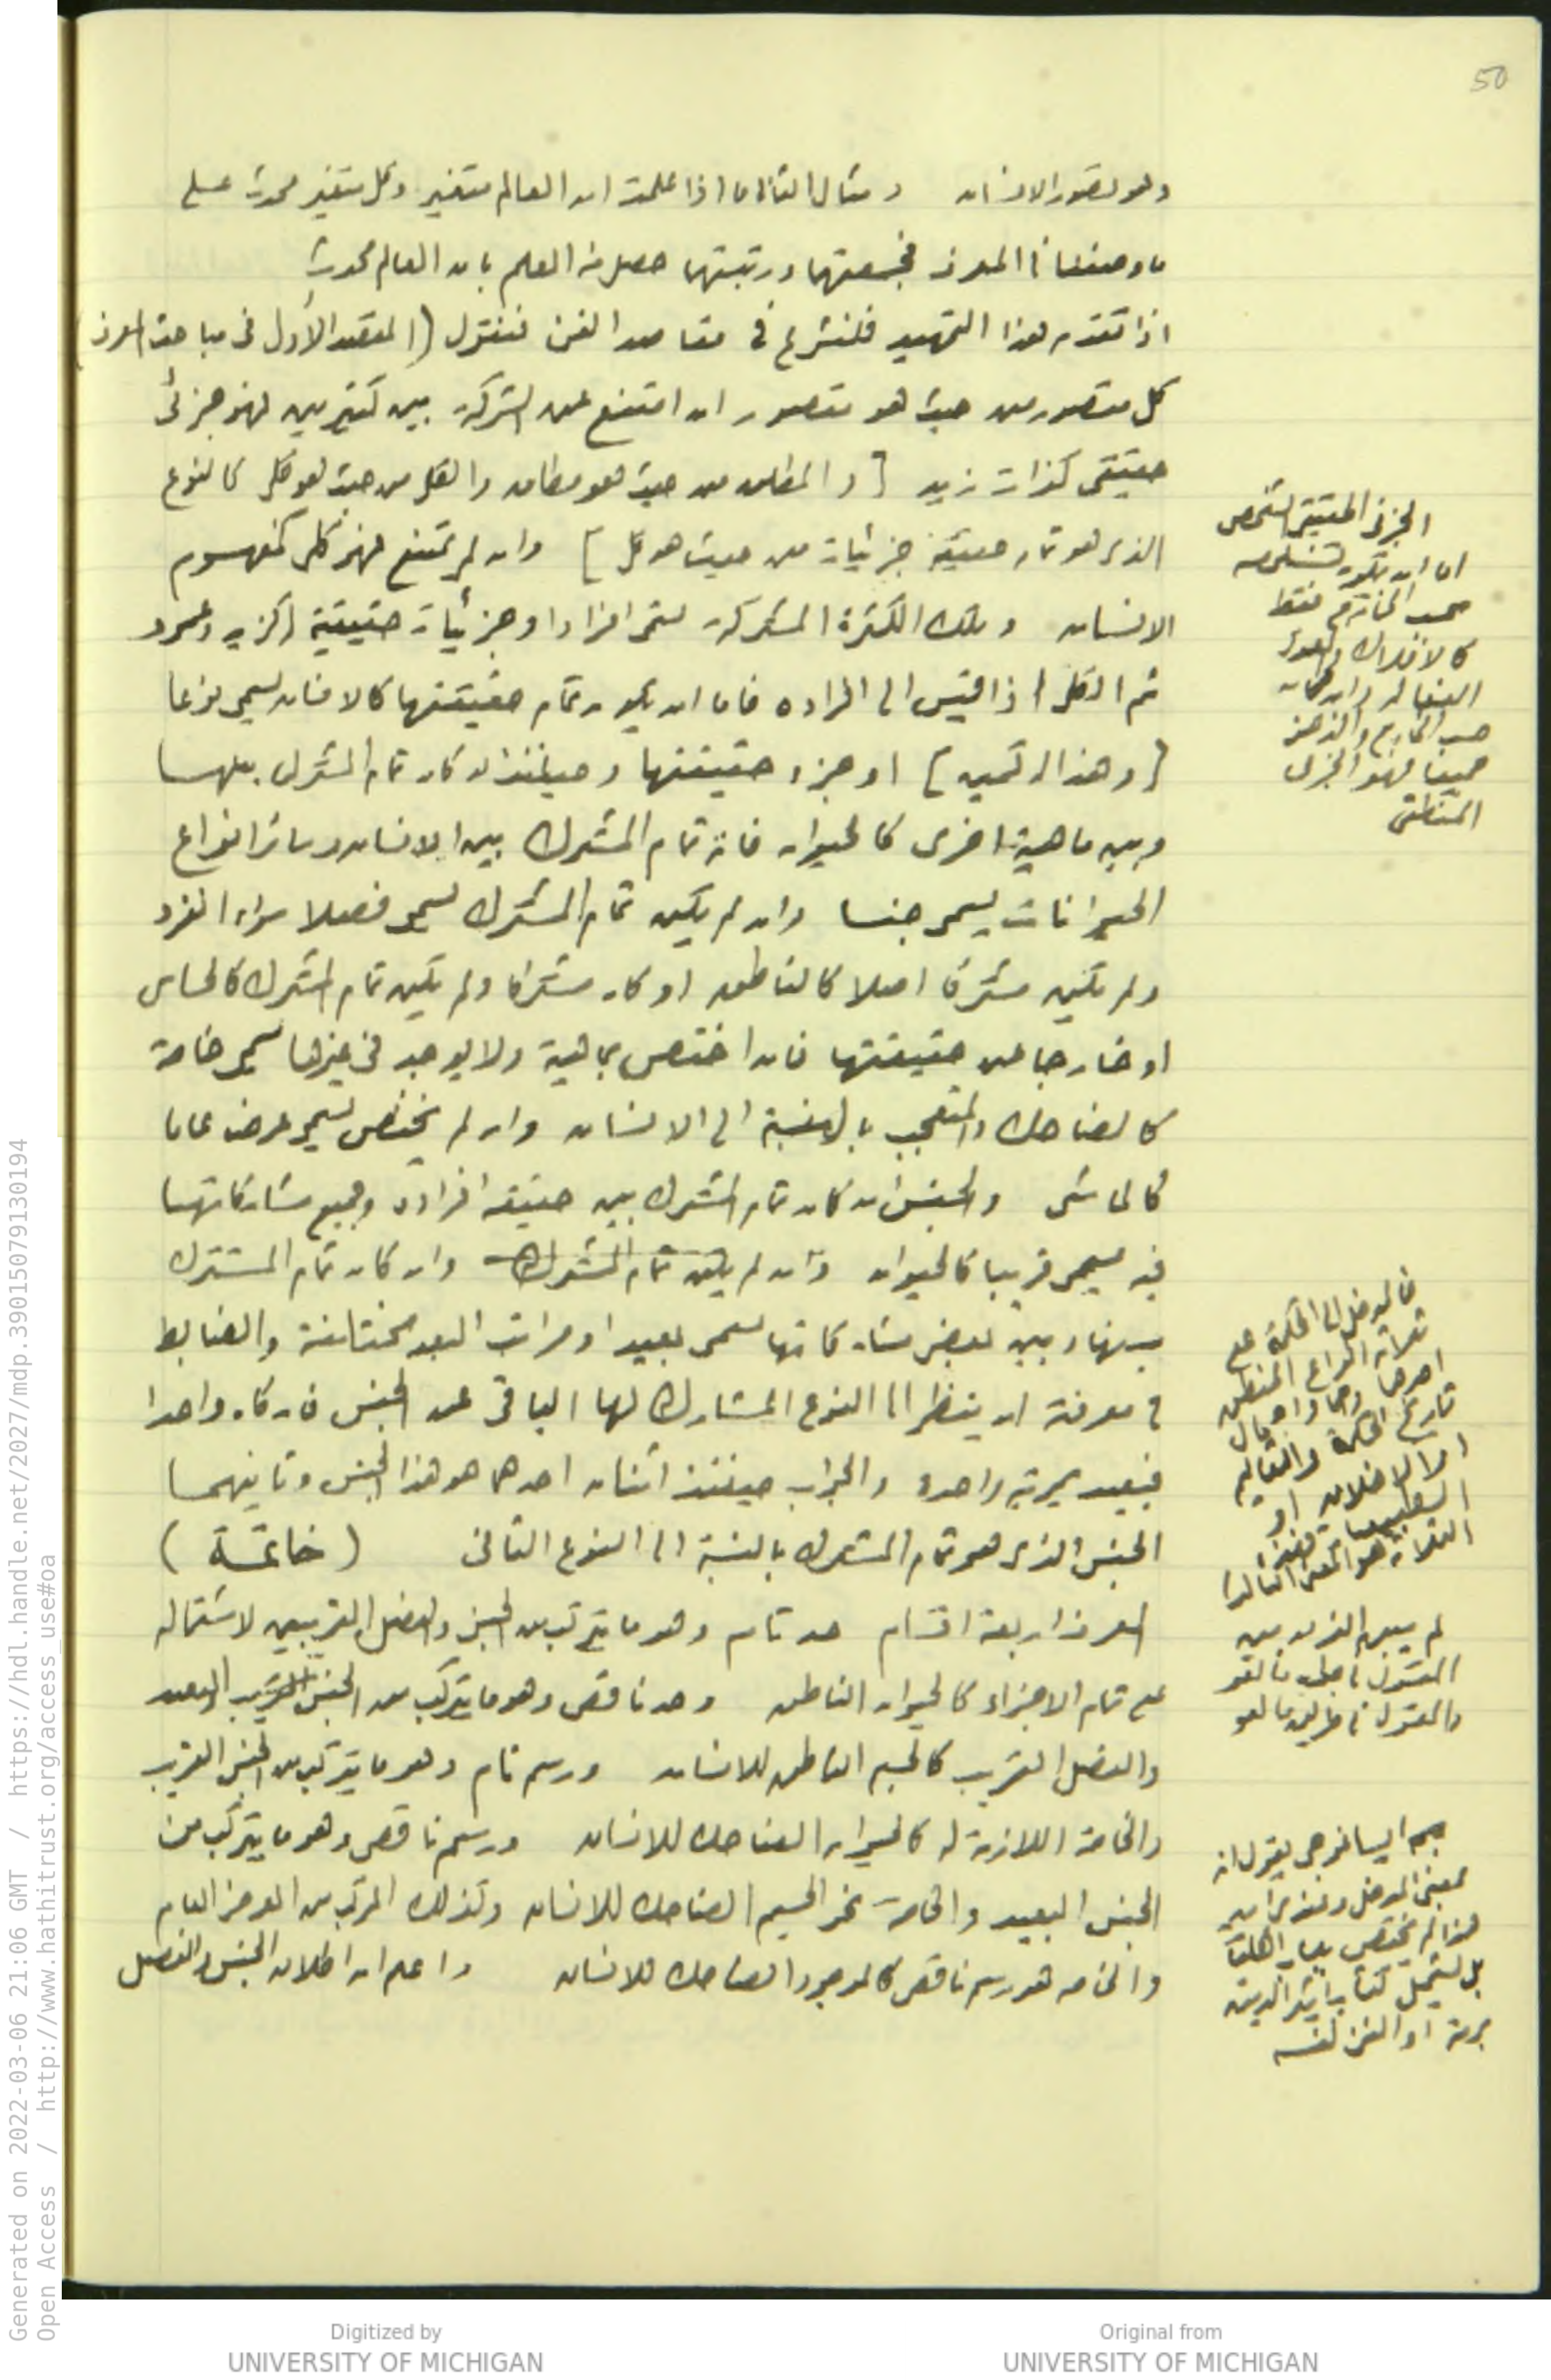 50
وهو تصور الانسان ومثال الثانى ما اذا علمت ان العالم متغير وكل متغير محدث على
ما وصفنا فى المعرف فجمعتهما ورتبتهما حصل منه العلم بان العالم محدث
اذا تقدم هذا التمهيد فلنشرع فى مقاصد الفن فنقول (المقصد الأول فى مباحث المعرف)
كل متصور من حيث هو متصور ان امتنع عن الشركة بين كثيرين فهو جزئى
حقيقى كذات زيد [والمطلق من حيث هو مطلق والكلى من حيث هو كلى كالنوع
الذى هو تمام حقيقة جزئيات من حيث هو كلى] وان لم يمتنع فهو كلى كمفهوم
الانسان وتلك الكثرة المشتركة تسمى افرادا وجزئيات حقيقية كزيد وعمرو
ثم الكلى اذا قيس الى افراده فاما ان يكون تمام حقيقتها كالانسان يسمى نوعا
[وهذا الـ] او جزء حقيقتها وحينئذ ان كان تمام المشترك بينها
وبين ماهية اخرى كالحيوان فانه تمام المشترك بين الانسان وسائر انواع
الحيوانات يسمى جنسا وان لم يكن تمام المشترك يسمى فصلا سواء انفرد
ولم يكن مشتركا اصلا كالناطق او كان مشتركا ولم يكن تمام المشترك كالحساس
او خارجا عن حقيقتها فان اختص بماهية ولا يوجد فى غيرها يسمى خاصة
كالضاحك والمتعجب بالنسبة الى الانسان وان لم يختص يسمى عرضا عاما
كالماشى والجنس ان كان تمام المشترك بين حقيقة افراده وجميع مشاركاتها
فيه يسمى قريبا كالحيوان وان لم يكن تمام المشترك وان كان تمام المشترك
بينها وبين بعض مشاركاتها يسمى بعيدا ومراتب البعد مختلفة والضابط
فى معرفته ان ينظر الى النوع المشارك لها الباقى عن الجنس فان كان واحدا
فبعيد بمرتبة واحدة والجواب حينئذ اثنان احدهما هو هذا الجنس وثانيهما
الجنس الذى هو تمام المشترك بالنسبة الى النوع الثانى (خاتمة)
المعرف اربعة اقسام حد تام وهو ما يتركب من الجنس والفصل القريبين لاشتماله
على تمام الاجزاء كالحيوان الناطق وحد ناقص وهو ما يتركب من الجنس القريب البعيد
والفصل القريب كالجسم الناطق للانسان ورسم تام وهو ما يتركب من الجنس القريب
والخاصة اللازمة له كالحيوان الضاحك للانسان ورسم ناقص وهو ما يتركب من
الجنس البعيد والخاصة نحو الجسم الضاحك للانسان وكذلك المركب من العرض العام
والخاصه هو رسم ناقص كالموجود الضاحك للانسان واعلم ان اطلاق الجنس والفصل
الجزئى الحقيقى الشخص
اما ان يكون تشخصه
بحسب الخارج فقط
كالافلاك والعقول
الفعاله وان كان
حسب الخارج والذهن
جميعا فهو الجزئى
المنطقى
فالمدخل الى الحكمة على
ثلاثة انواع المنطق
تاريخ الحكمة
لم يبين الفرق بين
المقول فى جواب ما هو
والمقول فى طريق ما هو
ايساغوجى يقول انه
بمعنى المدخل
هذا لم يختص
بل يشمل كتاب
او الفن نفسه
Generated on 2022-03-06 21:06 GMT / https://hdl.handle.net/2027/mdp.39015079130194
Open Access / http://www.hathitrust.org/access_use#oa
Digitized by
UNIVERSITY OF MICHIGAN
Original from
UNIVERSITY OF MICHIGAN